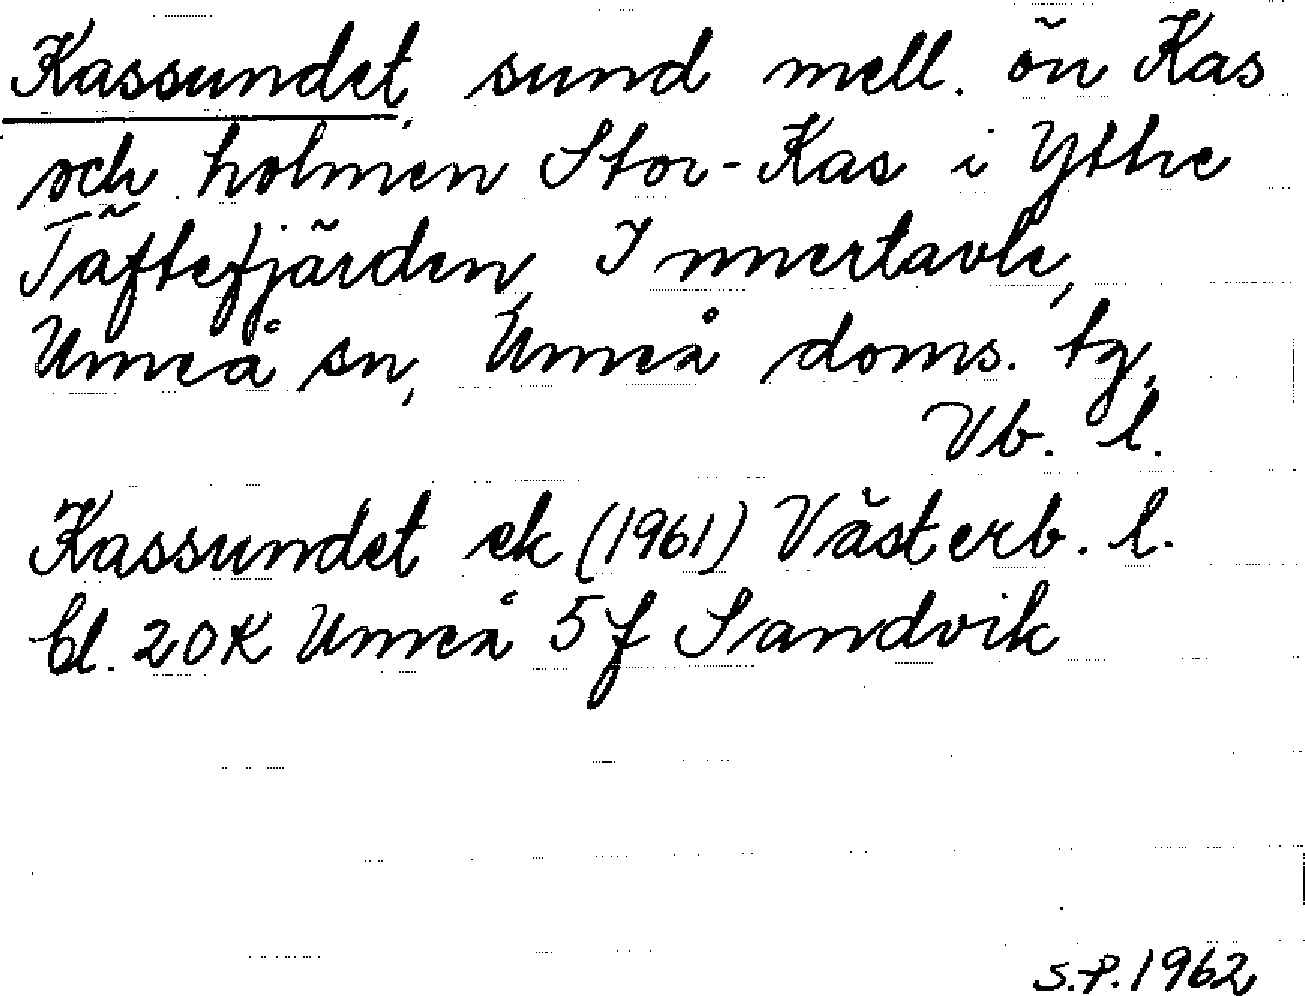 Kassundet, sund mell. ön Kas
och holmen Stor-Kas i Yttre
Täftefjärden, Innertavle,
Umeå sn, Umeå doms. tg,
Vb. l.
Kassundet ek (1961) Västerb. l.
bl. 20K Umeå 5f Sandvik
S.P. 1962